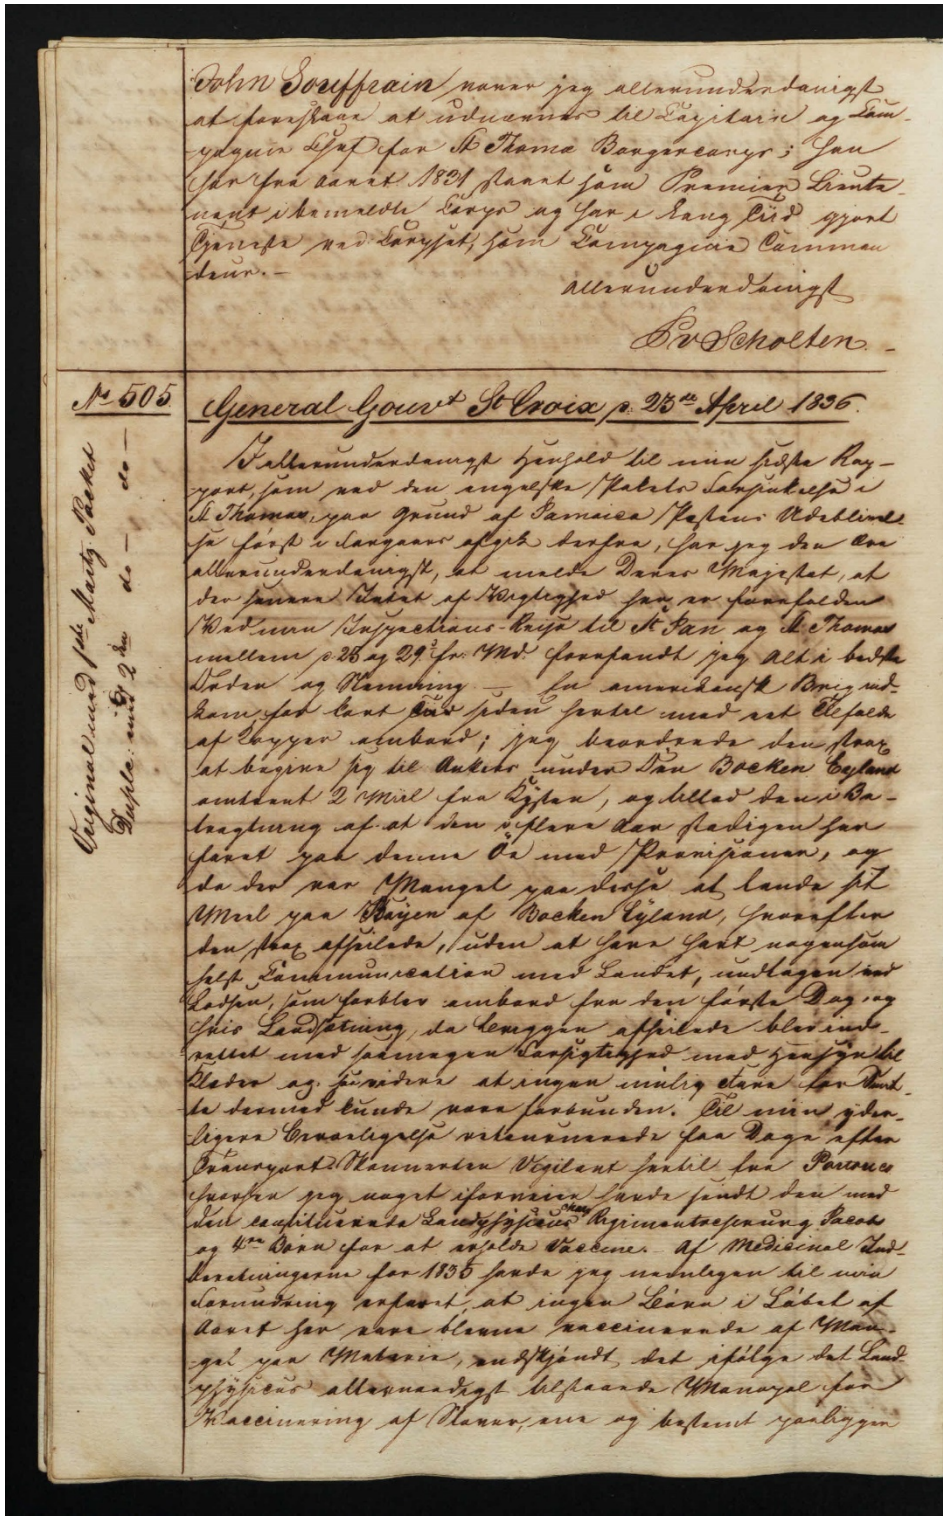 John Souffrain vover jeg allerunderdanigst
at foreslaae at udnævnes til Capitain og Com-
pagnie Chef for St Thomæ Borgercorps; han
har fra Aaret 1831 staaet som Premier Lieute-
nant i bemeldte Corps og har i lang Tiid gjort
Tjeneste ved Corpset, som Compagnie Comman
deur. -
allerunderdanigst
PvScholten. -
No 505
General Gouvt St Croix p. 23de April 1836.
Original med 1ste Martz Packet
Dupl: med 2den do - do -
I allerunderdanigst Henhold til min sidste Rap-
port, som ved den engelske Pakets Forsinkelse i
St Thomas, paa Grund af Jamaica Postens Udeblivel-
se først i Forgaars afgik derfra, har jeg den Ære
allerunderdanigst, at melde Deres Majestæt, at
der senere Intet af Vigtighed her er forefalden
Ved min Inspections-Reise til St Jan og St Thomas
mellem 23 og 29 fr. Md. forefandt jeg Alt i bedste
Orden og Stemning - En amerikansk Brig ind-
kom for kort Tiid siden hertil med eet Tilfælde
af Kopper ombord; jeg beordrede den strax
at begive sig til Ankers under Øen Bocken Eyland
omtrent 2 Miil fra Kysten, og tillod den i Be-
tragtning af at den i flere Aar stadigen har
faret paa denne Øe med Provisioner, og
da der var Mangel paa disse at lande sit
Meel paa Kayen af Bocken Eyland, hvorefter
den strax afseilede, uden at have havt nogensom
helst Communication med Landet, undtagen ved
Lodsen, som forblev ombord fra den første Dag, og
hvis Landsætning, da Briggen afseilede blev ind-
rettet med saamegen Forsigtighed med Hensyn til
Klæder og saa videre at ingen mulig Fare for
dermed kunde være forbunden. Til min yder-
ligere Beroeligelse retournerede faa Dage efter
Transport Skonnerten Vigilant hertil fra Portorico
hvorhen jeg noget iforveien havde sendt den med
den constituerede Landphysicus Regimentschirurg Jacobs
og 4re Børn for at erholde Vaccine. - Af Medicinal Ind-
beretningerne for 1835 havde jeg nemlig til min
Forundring erfaret, at ingen Børn i Løbet af
Aaret her vare blevne vaccinerede af Man-
gel paa Materie, endskjøndt det ifølge det Land-
physicus allernaadigst tilstaaede Monopol for
Vaccinering af Slaver, ene og bestemt paaligger